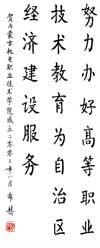 努力办好高等职业
技术教育为自治区
经济建设服务
贺内蒙古机电职业技术学院成立二〇〇三年八月 布赫